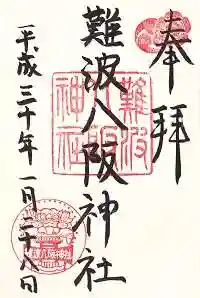 奉拝
難波八阪神社
難波
八阪
神社
平成三十年一月二十八日